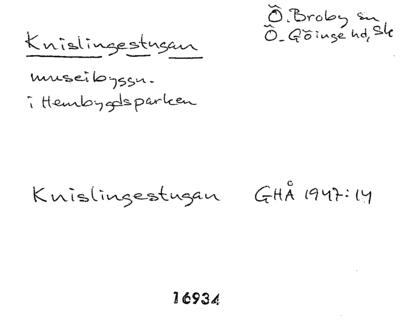 Knislingestugan
Ö. Broby sn
Ö. Göinge hd, Sk
museibyggn.
i Hembygdsparken
Knislingestugan GHÅ 1947:14
16934